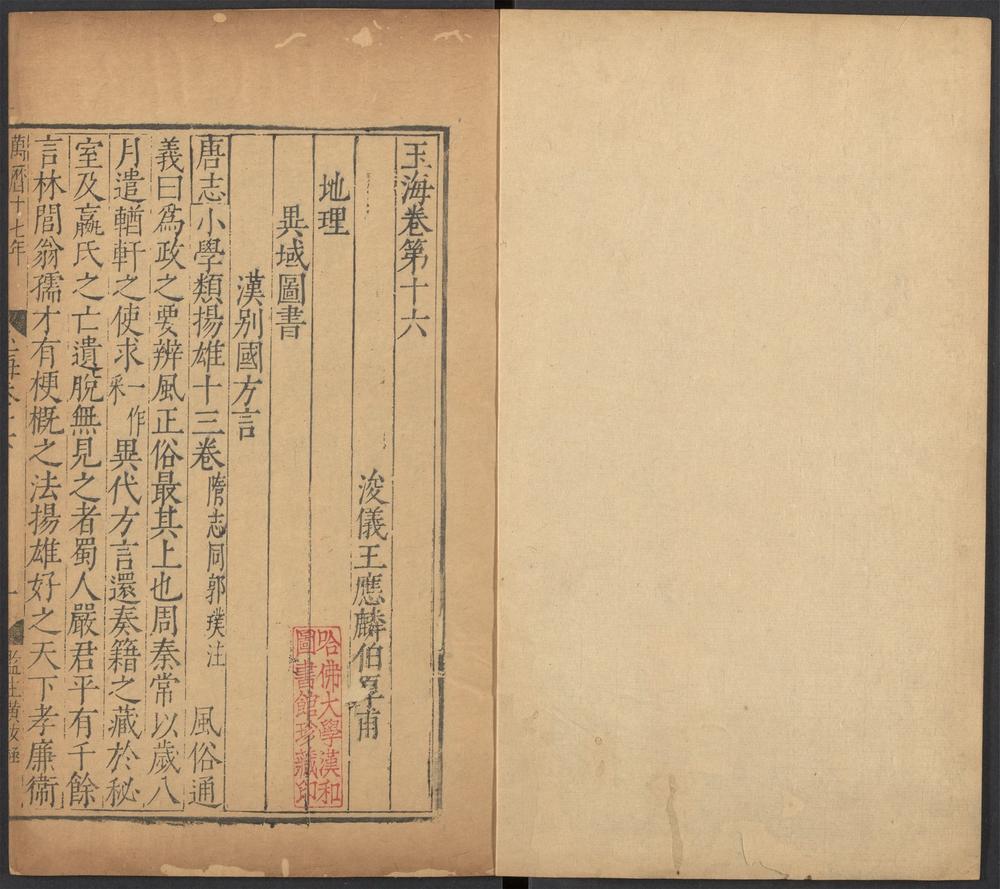 玉海卷第十六
浚儀王應麟伯厚甫
地理
異域圖書
漢別國方言
唐志小學類揚雄十三卷隋志同郭璞注 風俗通
義曰爲政之要辨風正俗最其上也周秦常以歲八
月遣輶軒之使求一作采異代方言還奏籍之藏於秘
室及嬴氏之亡遺脫無見之者蜀人嚴君平有千餘
言林閭翁孺才有梗概之法揚雄好之天下孝廉衛
萬曆十七年
哈佛大學漢和
圖書館珍藏印